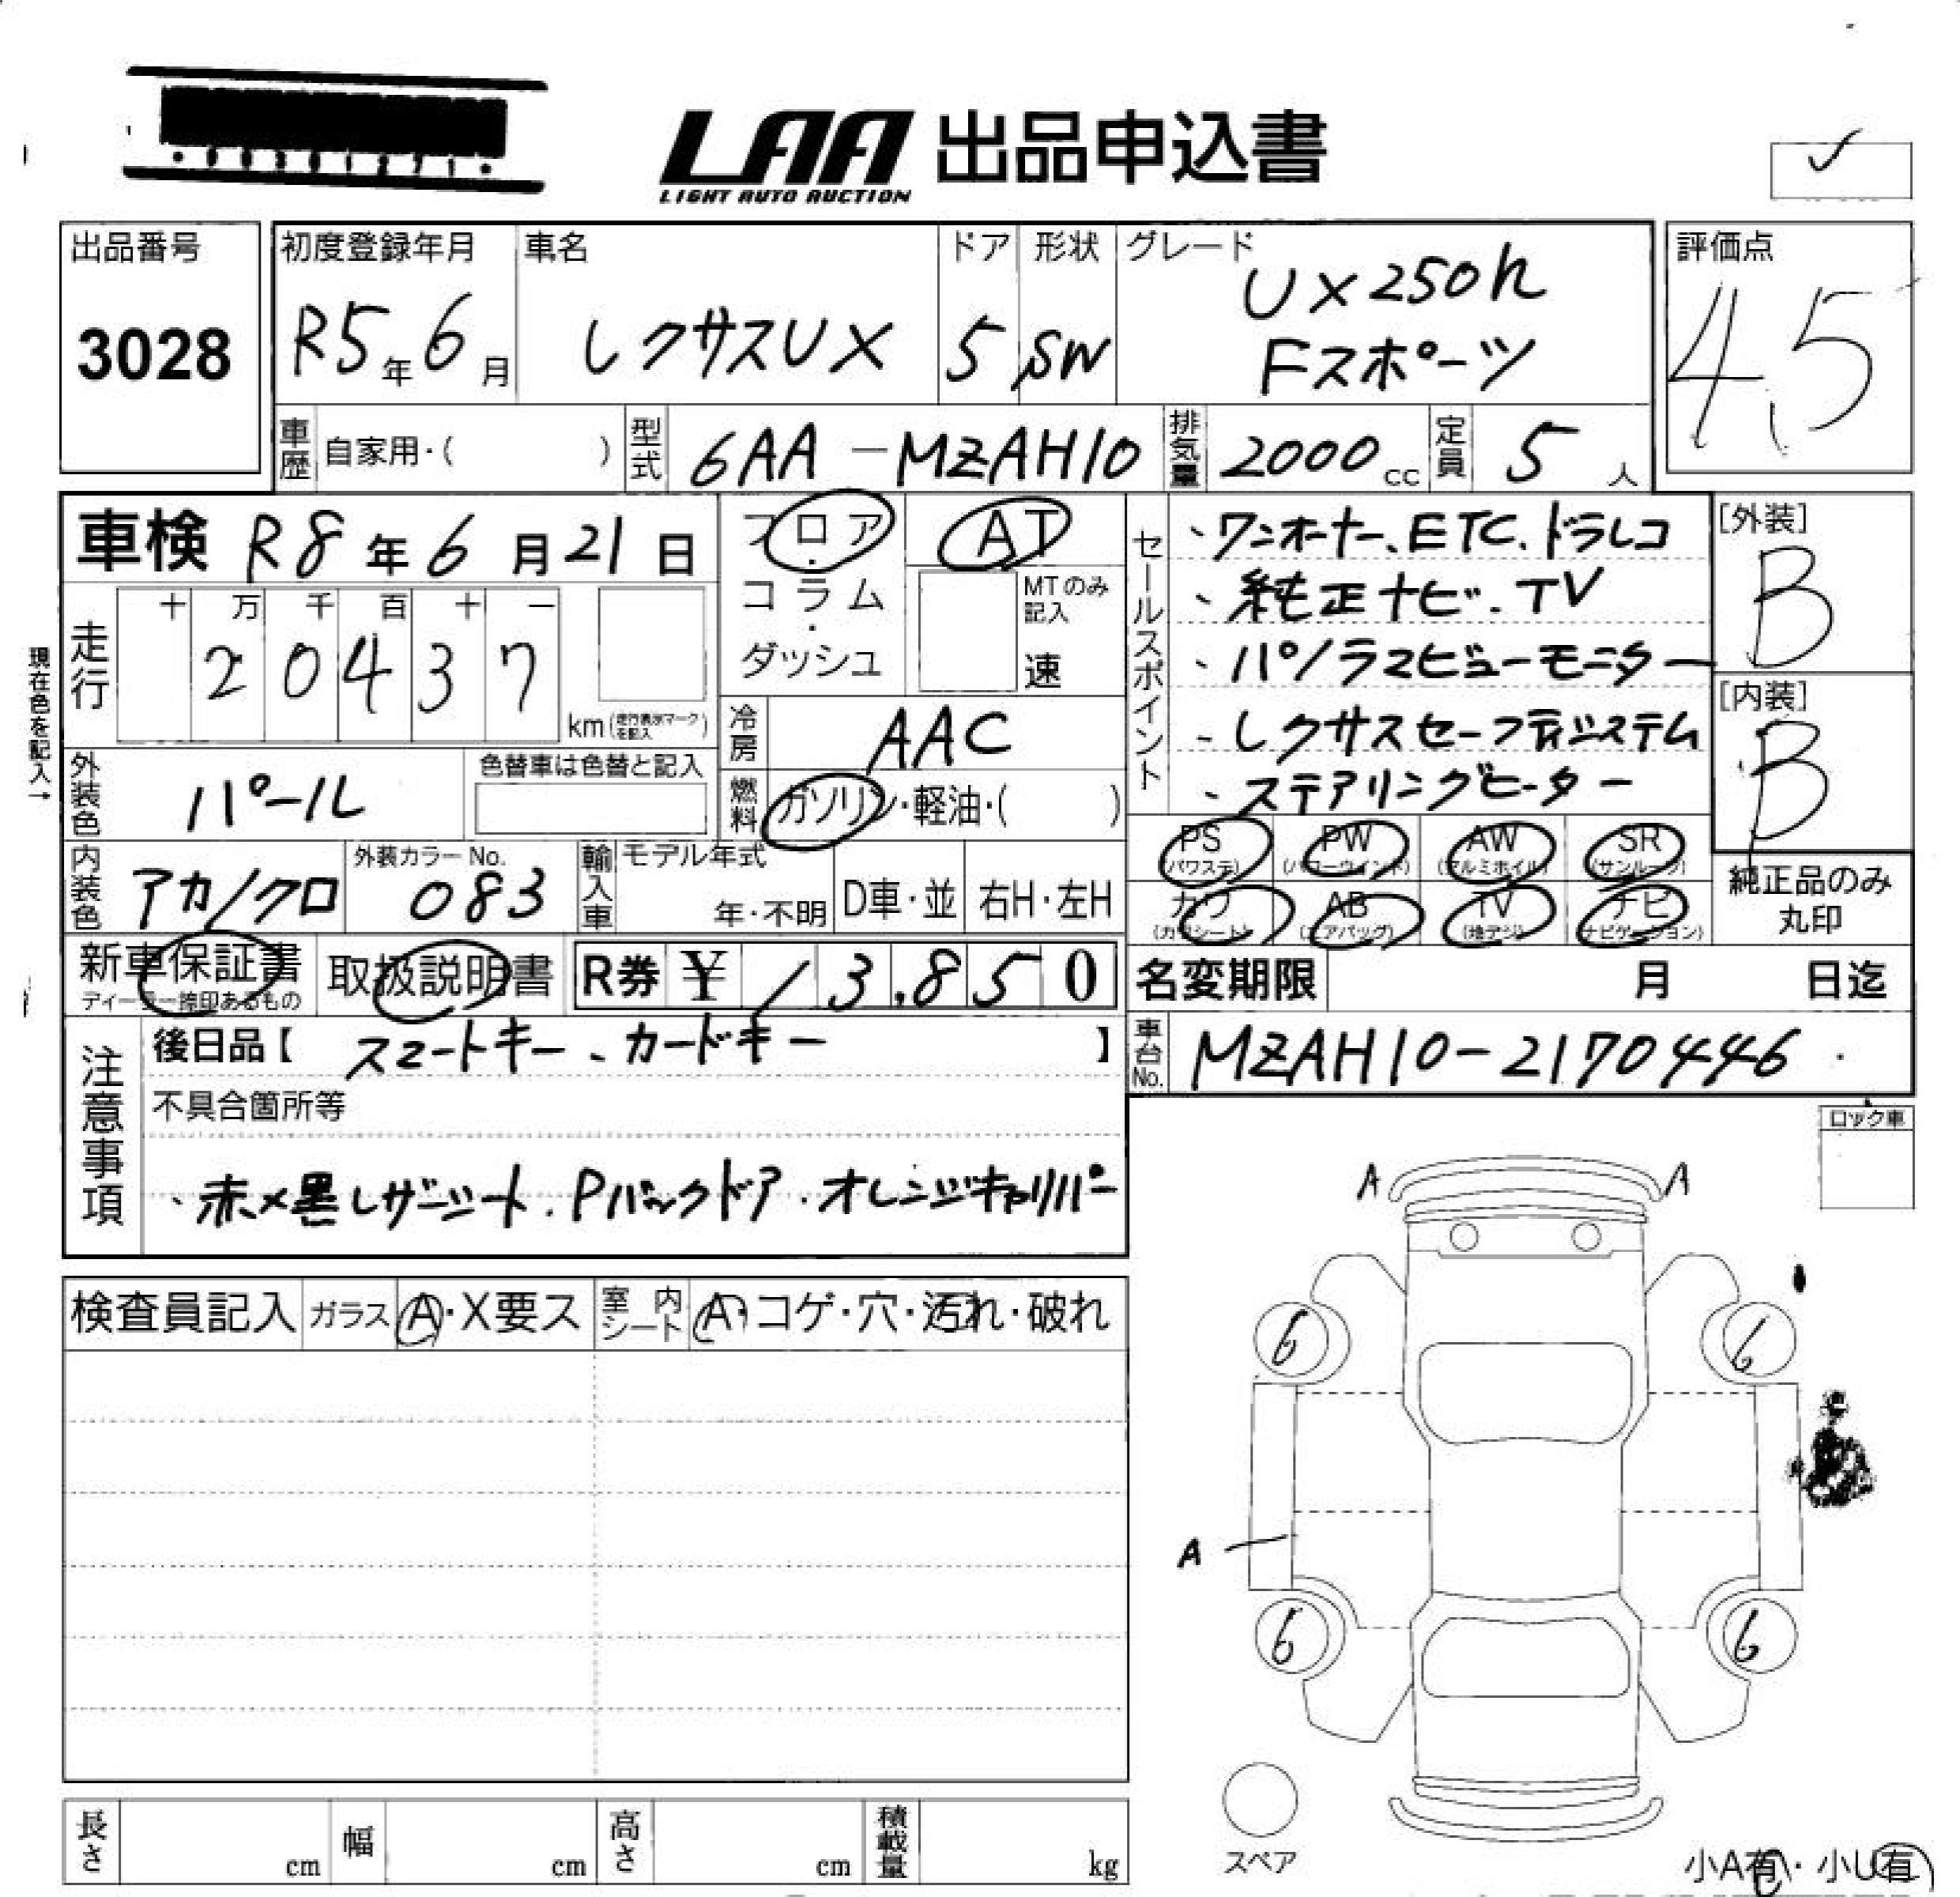 LAA 出品申込書
LIGHT AUTO AUCTION
出品番号
3028
初度登録年月
R5年6月
車名
レクサスUX
ドア
5
形状
SW
グレード
UX250h
Fスポーツ
評価点
4.5
車歴 自家用・( )
型式 6AA-MZAH10
排気量 2000cc
定員 5人
車検 R8年6月21日
現在色を記入→
走行
十 万 千 百 十 一
20437
km(走行表示マークを記入)
フロア・コラム・ダッシュ
AT
MTのみ記入
速
冷房 AAC
燃料 ガソリン・軽油・( )
セールスポイント
・ワンオーナー、ETC、ドラレコ
・純正ナビ、TV
・パノラマビューモニター
・レクサスセーフティシステム
・ステアリングヒーター
[外装]
B
[内装]
B
外装色 パール
色替車は色替と記入
内装色 アカ/クロ
外装カラーNo.
083
輸入車 モデル年式
年・不明
D車・並
右H・左H
PS (パワステ)
PW (パワーウインド)
AW (アルミホイル)
SR (サンルーフ)
カワ (カワシート)
AB (エアバッグ)
TV (地デジ)
ナビ (ナビゲーション)
純正品のみ
丸印
新車保証書
ディーラー捺印あるもの
取扱説明書
R券 ¥13,850
名変期限 月 日迄
車台No. MZAH10-2170446
注意事項
後日品【 スマートキー、カードキー 】
不具合箇所等
・赤×黒レザーシート、Pバックドア、オレンジキャリパー
ロック車
検査員記入
ガラス A・X要ス
室内シート A・コゲ・穴・汚れ・破れ
A A
6 6
A
6 6
スペア
小A有・小U有
長さ cm
幅 cm
高さ cm
積載量 kg